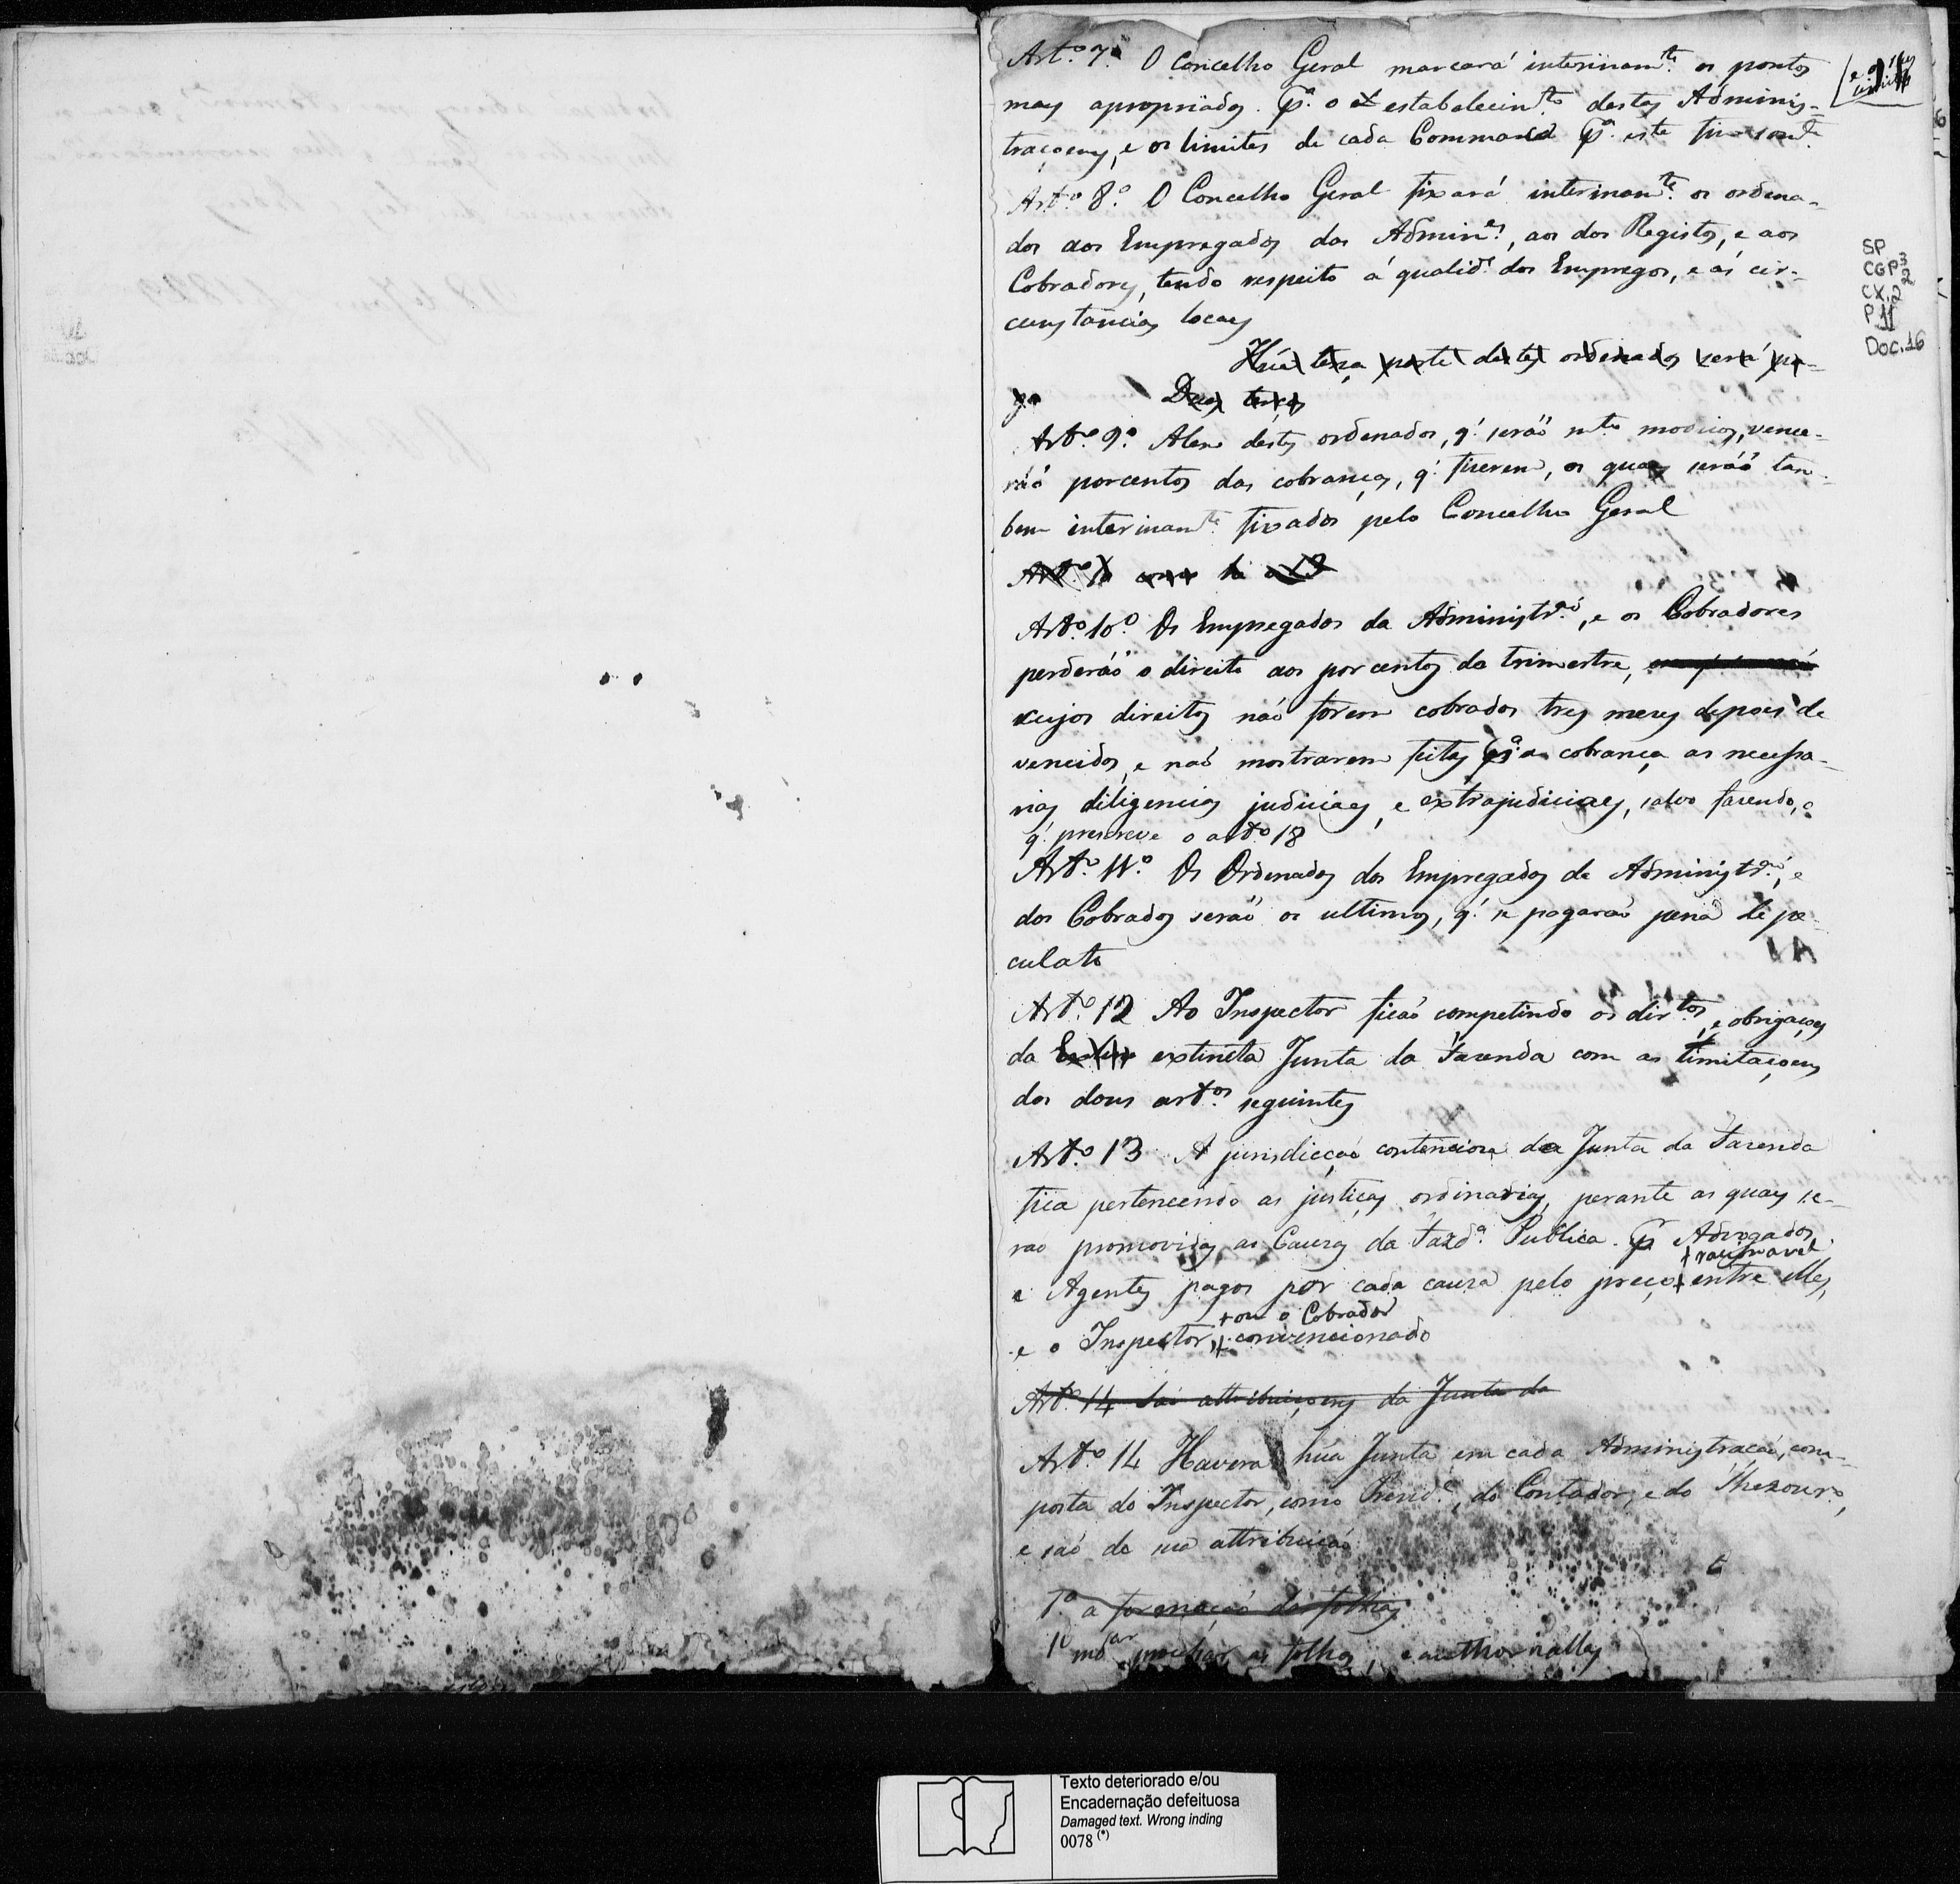 Art.º 7.º O Concelho Geral marcará interinam.te os pontos
mais apropriados p.ª o estabelecim.to destas Adminis-
traçoens, e os limites de cada Commarca p.ª este fim som.te
Art.º 8.º O Concelho Geral fixará interinam.te os ordena-
dos aos Empregados das Admin.es, aos dos Registos, e aos
Cobradores, tendo respeito á qualid.e dos Empregos, e ás cir-
cunstancias locaes
Húa terça parte destes ordenados será pa-
ga Duas terças
Art.º 9.º Alem destes ordenados, q' serão m.to modicos, vence-
ráõ porcentos das cobranças, q' fizerem, os quaes seráõ tam-
bem interinam.te fixados pelo Concelho Geral
Art.º 10
Art.º 10.º Os Empregados da Administr.ão, e os Cobradores
perderáõ o direito aos por centos do trimestre,
cujos direitos não forem cobrados tres mezes depois de
vencidos, e não mostrarem feitas p.ª a cobrança as necessa-
rias diligencias judiciaes, e extrajudiciaes, salvo fazendo, o
q' prescreve o art.º 18
Art.º 11.º Os Ordenados dos Empregados da Administr.ão, e
dos Cobrados serão os ultimos, q' se pagarão pena de pe-
culato
Art.º 12 Ao Inspector ficão competindo os dir.tos, e obrigaçoes
da extincta Junta da Fazenda com as limitaçoens
dos dous art.os seguintes
Art.º 13 A jurisdicção contenciosa da Junta da Fazenda
fica pertencendo as justiças ordinarias, perante as quaes se-
rao promovidas as Causas da Fazd.ª Publica p Advogados,
+ rasoavel
e Agentes pagos por cada causa pelo preço + entre elles,
+ ou o Cobrador
e o Inspector, + convencionado
Art.º 14 São attribuiçoens da Junta da
Art.º 14 Havera húa Junta em cada Administração, com-
posta do Inspector, como Presid.e, do Contador, e do Thezour.º,
e são de sua attribuição
1.ª a formação das folhas
1º as folhas, nellas
SP
CGP3
CX.2
P11
Doc.16
Texto deteriorado e/ou
Encadernação defeituosa
Damaged text. Wrong inding
0078 (*)